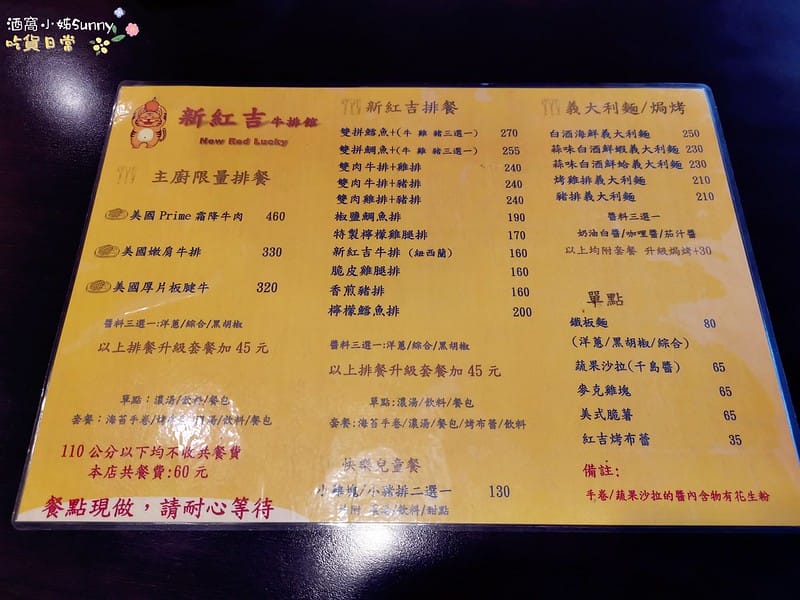 酒窩小姊Sunny
吃貨日常
新紅吉牛排館
New Red Lucky
主廚限量排餐
美國Prime霜降牛肉 460
美國嫩肩牛排 330
美國厚片板腱牛 320
醬料三選一:洋蔥/綜合/黑胡椒
以上排餐升級套餐加45元
單點:濃湯/飲料/餐包
套餐:海苔手卷/烤布 湯/飲料/餐包
110公分以下均不收共餐費
本店共餐費:60元
餐點現做,請耐心等待
新紅吉排餐
雙拼鱈魚+(牛 雞 豬三選一) 270
雙拼鯛魚+(牛 雞 豬三選一) 255
雙肉牛排+雞排 240
雙肉牛排+豬排 240
雙肉雞排+豬排 240
椒鹽鯛魚排 190
特製檸檬雞腿排 170
新紅吉牛排(紐西蘭) 160
脆皮雞腿排 160
香煎豬排 160
檸檬鱈魚排 200
醬料三選一:洋蔥/綜合/黑胡椒
以上排餐升級套餐加45元
單點:濃湯/飲料/餐包
套餐:海苔手卷/濃湯/餐包/烤布蕾/飲料
快樂兒童餐
小雞塊/小豬排二選一 130
附 濃湯/飲料/甜點
義大利麵/焗烤
白酒海鮮義大利麵 250
蒜味白酒鮮蝦義大利麵 230
蒜味白酒鮮蛤義大利麵 230
烤雞排義大利麵 210
豬排義大利麵 210
醬料三選一
奶油白醬/咖哩醬/茄汁醬
以上均附套餐 升級焗烤+30
單點
鐵板麵 80
(洋蔥/黑胡椒/綜合)
蔬果沙拉(千島醬) 65
麥克雞塊 65
美式脆薯 65
紅吉烤布蕾 35
備註:
手卷/蔬果沙拉的醬內含物有花生粉